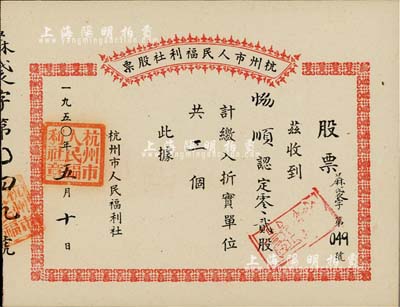 上海陽明拍賣
杭州市人民福利社股票
股票
麻袋字第049號
茲收到
協順認定零、貳股
計繳入折實單位
共二個
此據
杭州市人民福利社
一九五〇年五月十日
杭州市人民福利社章
麻袋字第〇四九號